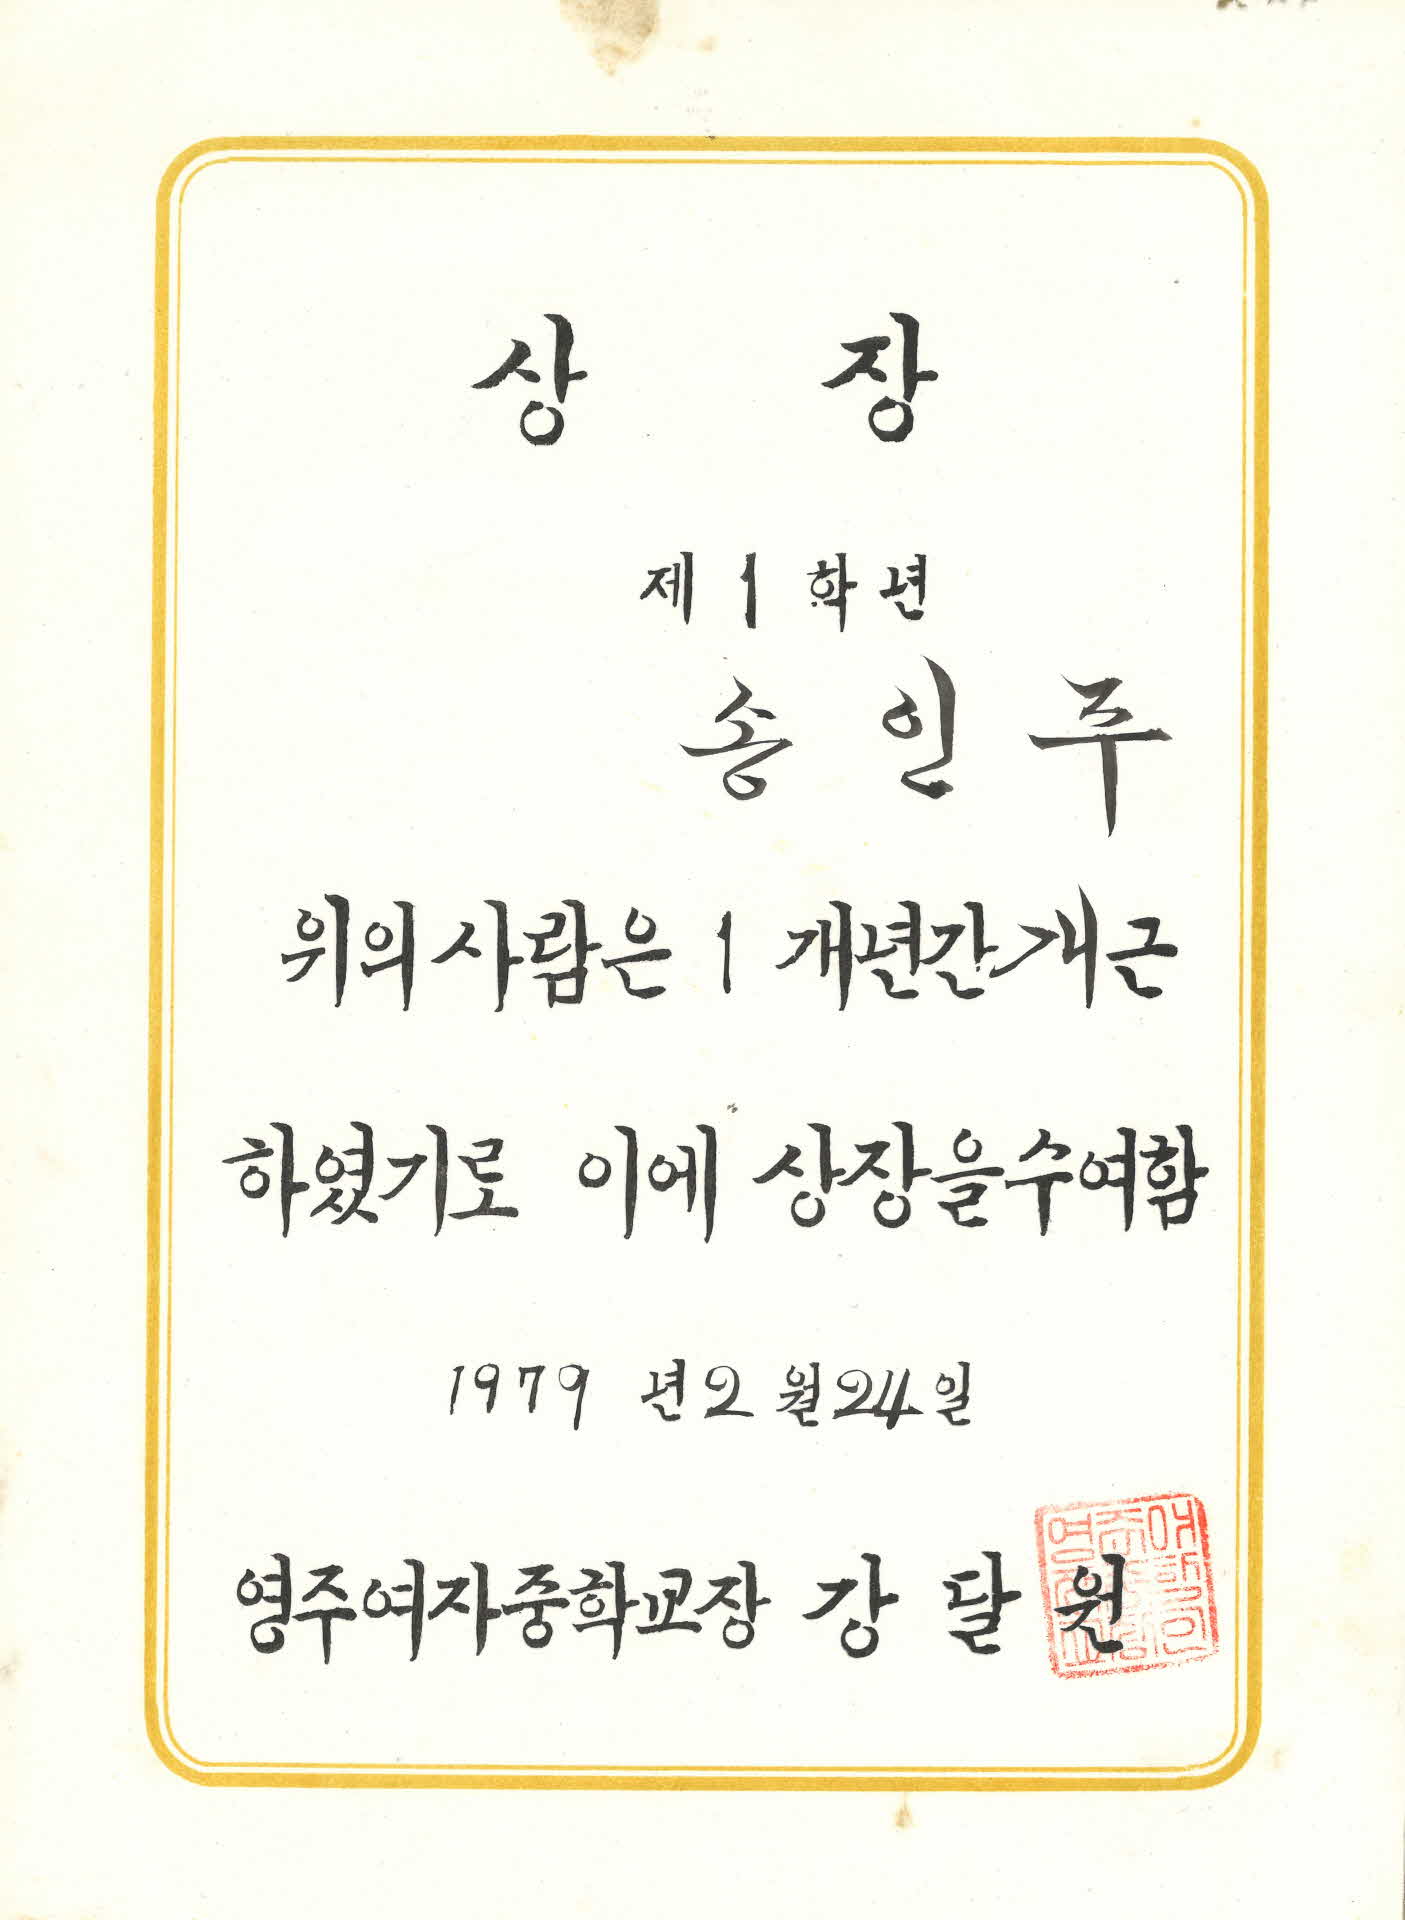 상 장
제 1 학년
송 인 주
위의 사람은 1 개년간 개근
하였기로 이에 상장을 수여함
1979 년 2 월 24 일
영주여자중학교장 강 달 원